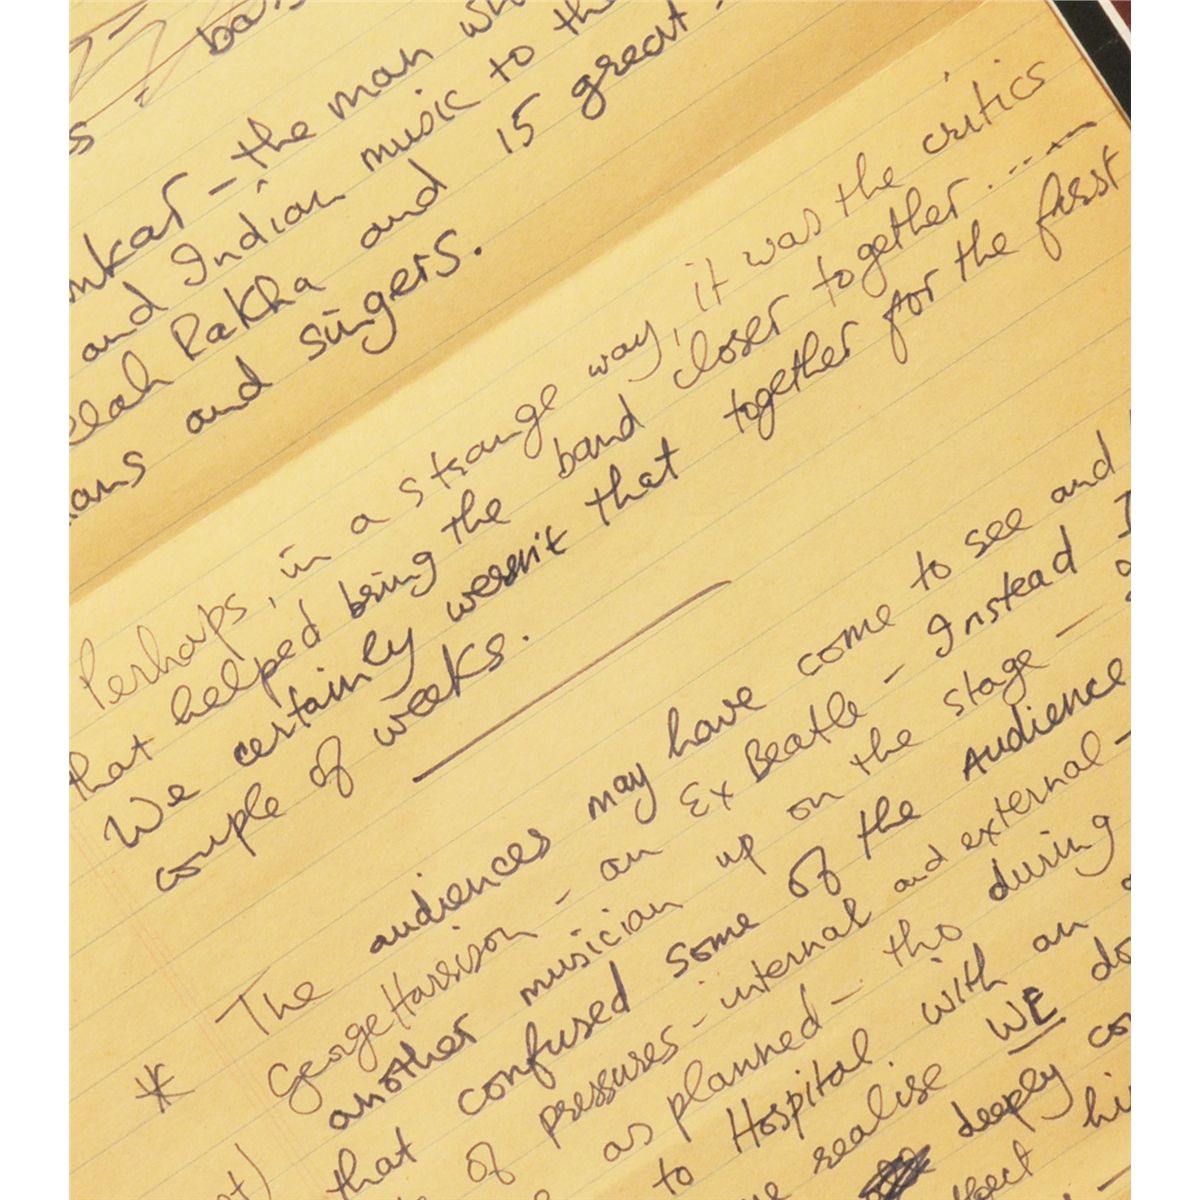 nkar - the man wh
and Indian music to the
Rakha and 15 great
ans and singers.
Perhaps, in a strange way, it was the critics
that helped bring the band closer together.....
We certainly weren't that together for the first
couple of weeks.
* The audiences may have come to see and
George Harrison - an Ex Beatle - Instead I
another musician up on the stage -
that confused some of the Audience
of pressures - internal and external -
as planned - tho during
to Hospital. with an
realise WE do
deeply con
hi